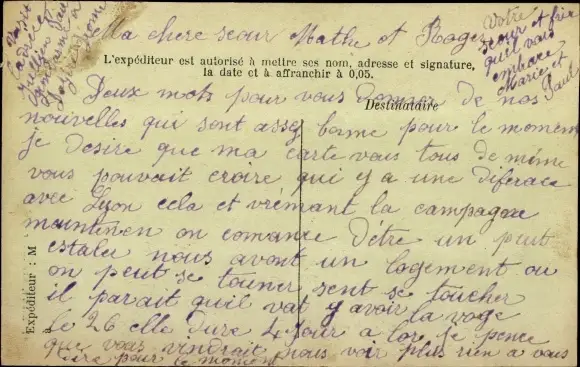 Ma chere seour Mathe et Roger
L'expéditeur est autorisé à mettre ses nom, adresse et signature,
la date et à affranchir à 0,05.
Destinataire
Deux mots pour vous donner de nos
nouvelles qui sont assez bonne pour le moment
je desire que ma carte vous tous de méme
vous pouvait croire qui y a une diferace
avec Lyon cela et vrémant la campagne
maintenen on comance d'être un peut
estalu nous avont un logement ou
on peut se touner sent se toucher
il parait quil vat y avoir la voge
le 26 elle dure 4 jour a lor je pence
que vous vindrait nous voir plus rien a vous
dire pour le moment
Votre
seour et frere
quil vous
embrace
Marie et
Paul
Expéditeur : M
à